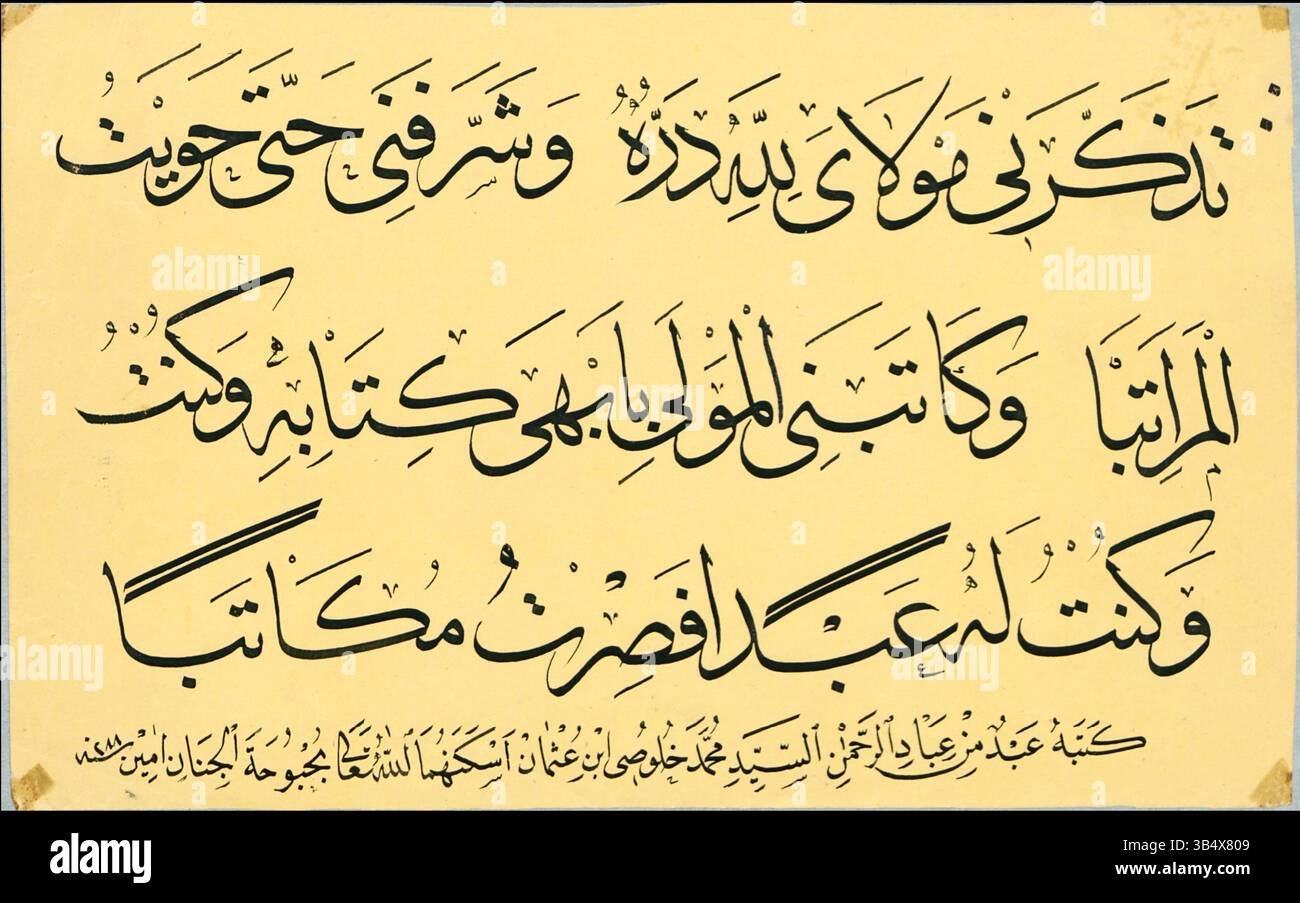 تَذَكَّرَنِي مَوْلَايَ لِلَّهِ دَرُّهُ وَشَرَّفَنِي حَتَّى حَوَيْتُ
الْمَرَاتِبَا وَكَاتَبَنِي الْمَوْلَى بِأَبْهَى كِتَابِهِ وَكُنْتُ
وَكُنْتُ لَهُ عَبْدًا فَصِرْتُ مُكَاتَبًا
كَتَبَهُ عَبْدٌ مِنْ عِبَادِ الرَّحْمٰنِ السَّيِّدِ مُحَمَّدْ خُلُوصِى ابْنِ عُثْمَانْ اَسْكَنَهُمَا اللّٰهُ تَعَالَى بُحْبُوحَةَ الْجِنَانِ اٰمِيْن سنه
alamy
alamy
Image ID: 3B4X809
www.alamy.com